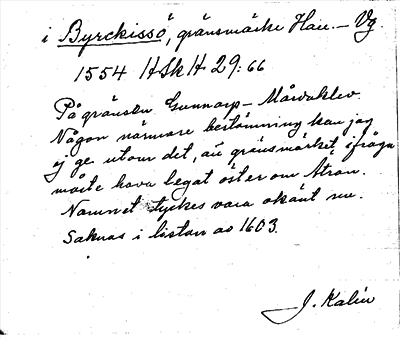 i Byrckissö, gränsmärke Hall. - Vg.
1554 HSkH 29:66
På gränsen Gunnarp - Mårdaklev.
Någon närmare bestämning kan jag
ej ge utom det, att gränsmärket ifråga
måste hava legat öster om Ätran.
Namnet tyckes vara okänt nu.
Saknas i listan av 1603.
J. Kalén